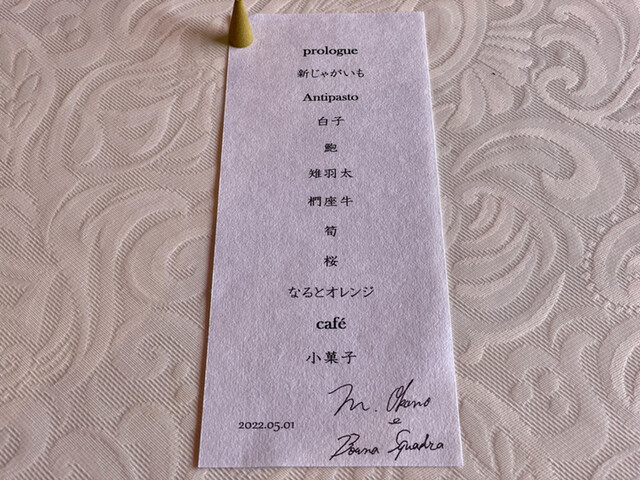 prologue
新じゃがいも
Antipasto
白子
鮑
雉羽太
椚座牛
筍
桜
なるとオレンジ
café
小菓子
M. Okano
e
2022.05.01
Buona Squadra